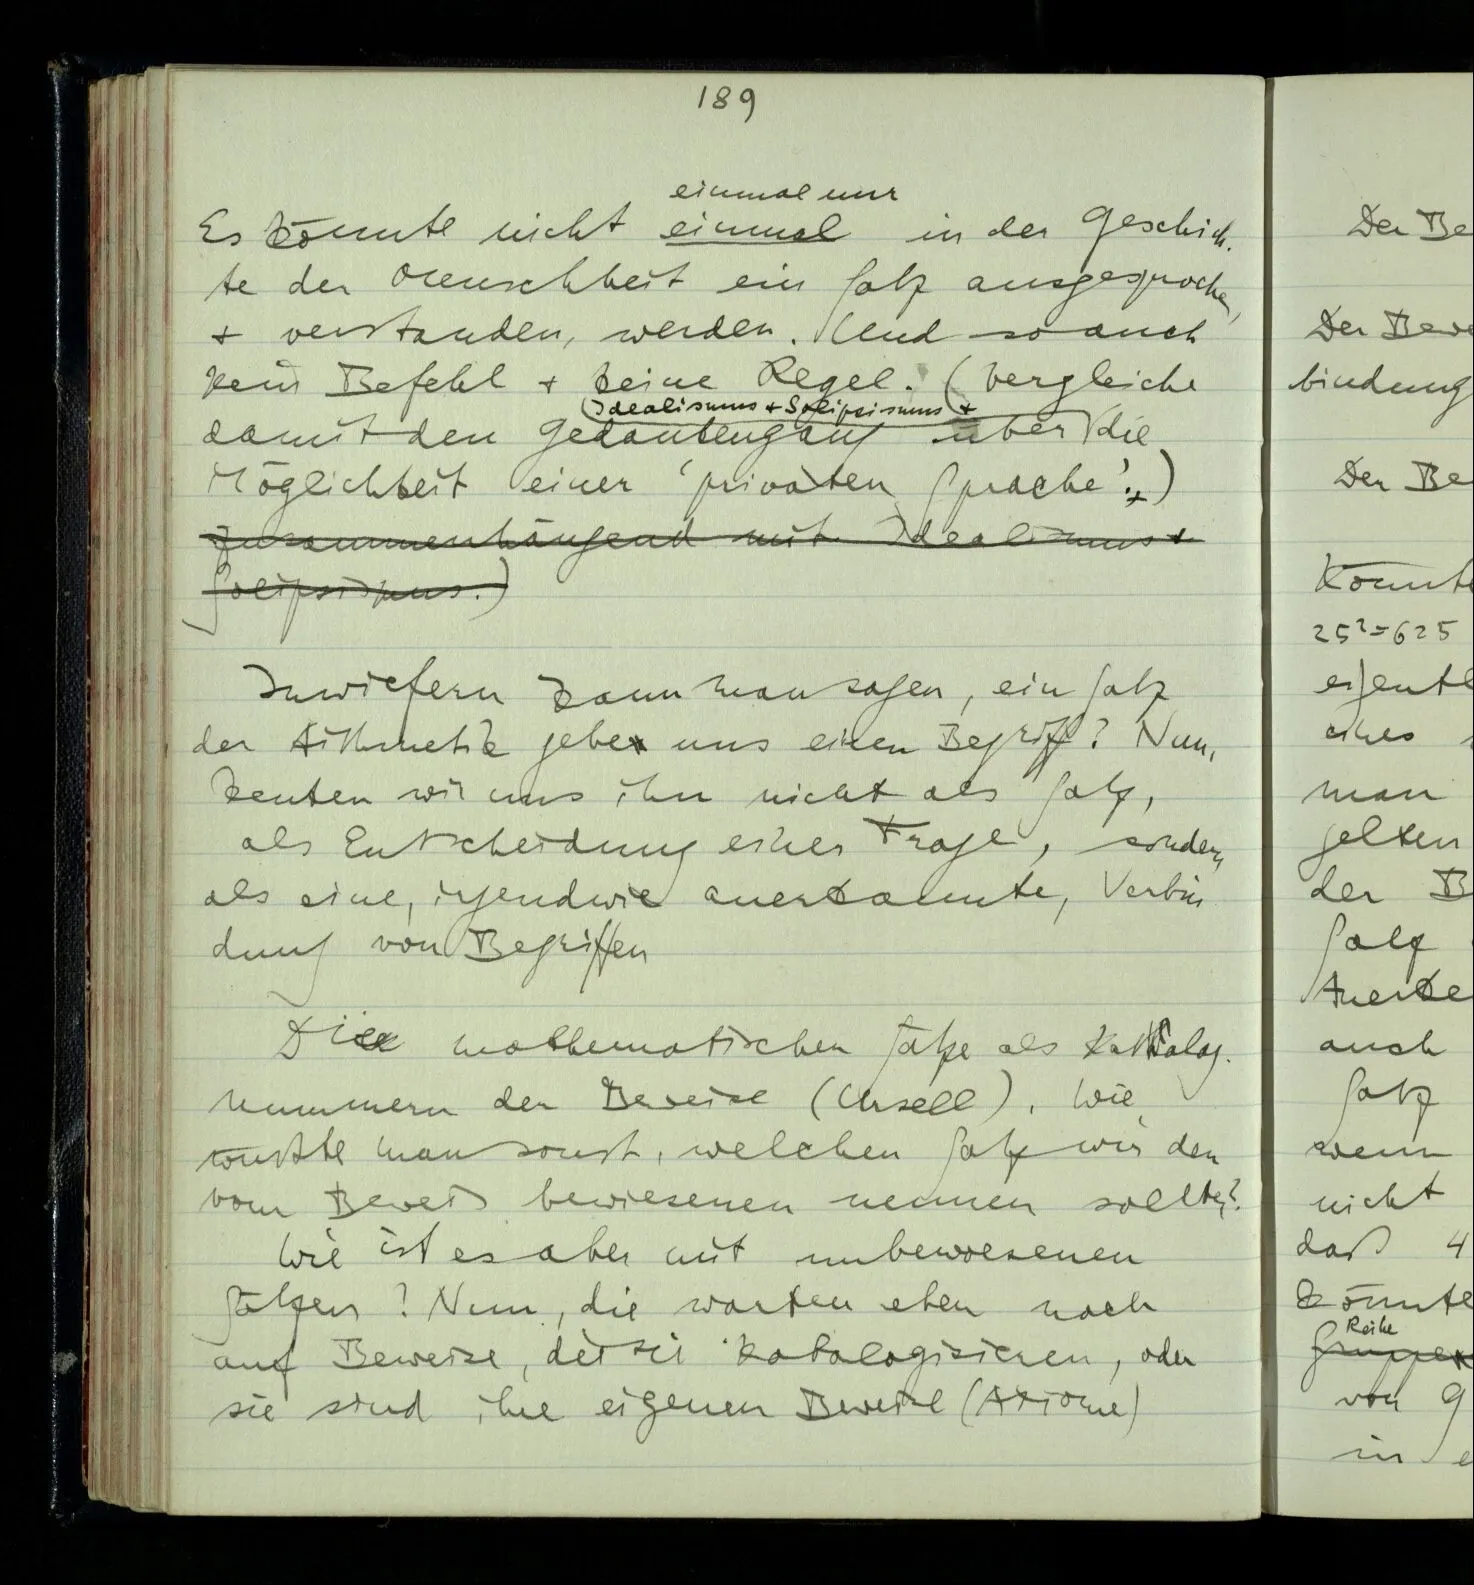 189
einmal nur
Es könnte nicht einmal in der Geschich-
te der Menschheit ein Satz ausgesprochen,
+ verstanden, werden. Und so auch
kein Befehl + keine Regel. (Vergleiche
(Idealismus + Solipsismus +
damit den Gedankengang über die
Möglichkeit einer 'privaten Sprache'.)
zusammenhängend mit Idealismus +
Solipsismus.)
Inwiefern kann man sagen, ein Satz
der Arithmetik gebe uns einen Begriff? Nun,
deuten wir uns ihn nicht als Satz,
als Entscheidung einer Frage, sondern
als eine, irgendwie anerkannte, Verbin
dung von Begriffen
Die mathematischen Sätze als Katalog-
nummern der Beweise (Ursell). Wie
wüßte man sonst, welchen Satz wir den
vom Beweis bewiesenen nennen sollten?
Wie ist es aber mit unbewiesenen
Sätzen? Nun, die warten eben noch
auf Beweise, die sie katalogisieren, oder
sie sind ihre eigenen Beweise (Axiome)
Der Be
Der Bewe
bindung
Der Be
Könnte
25²=625
eigentl
eines
man
gelten
der B
Satz
Anerke
auch
Satz
wenn
nicht
daß 4
könnte
Reihe
Gruppe
von 9
in e